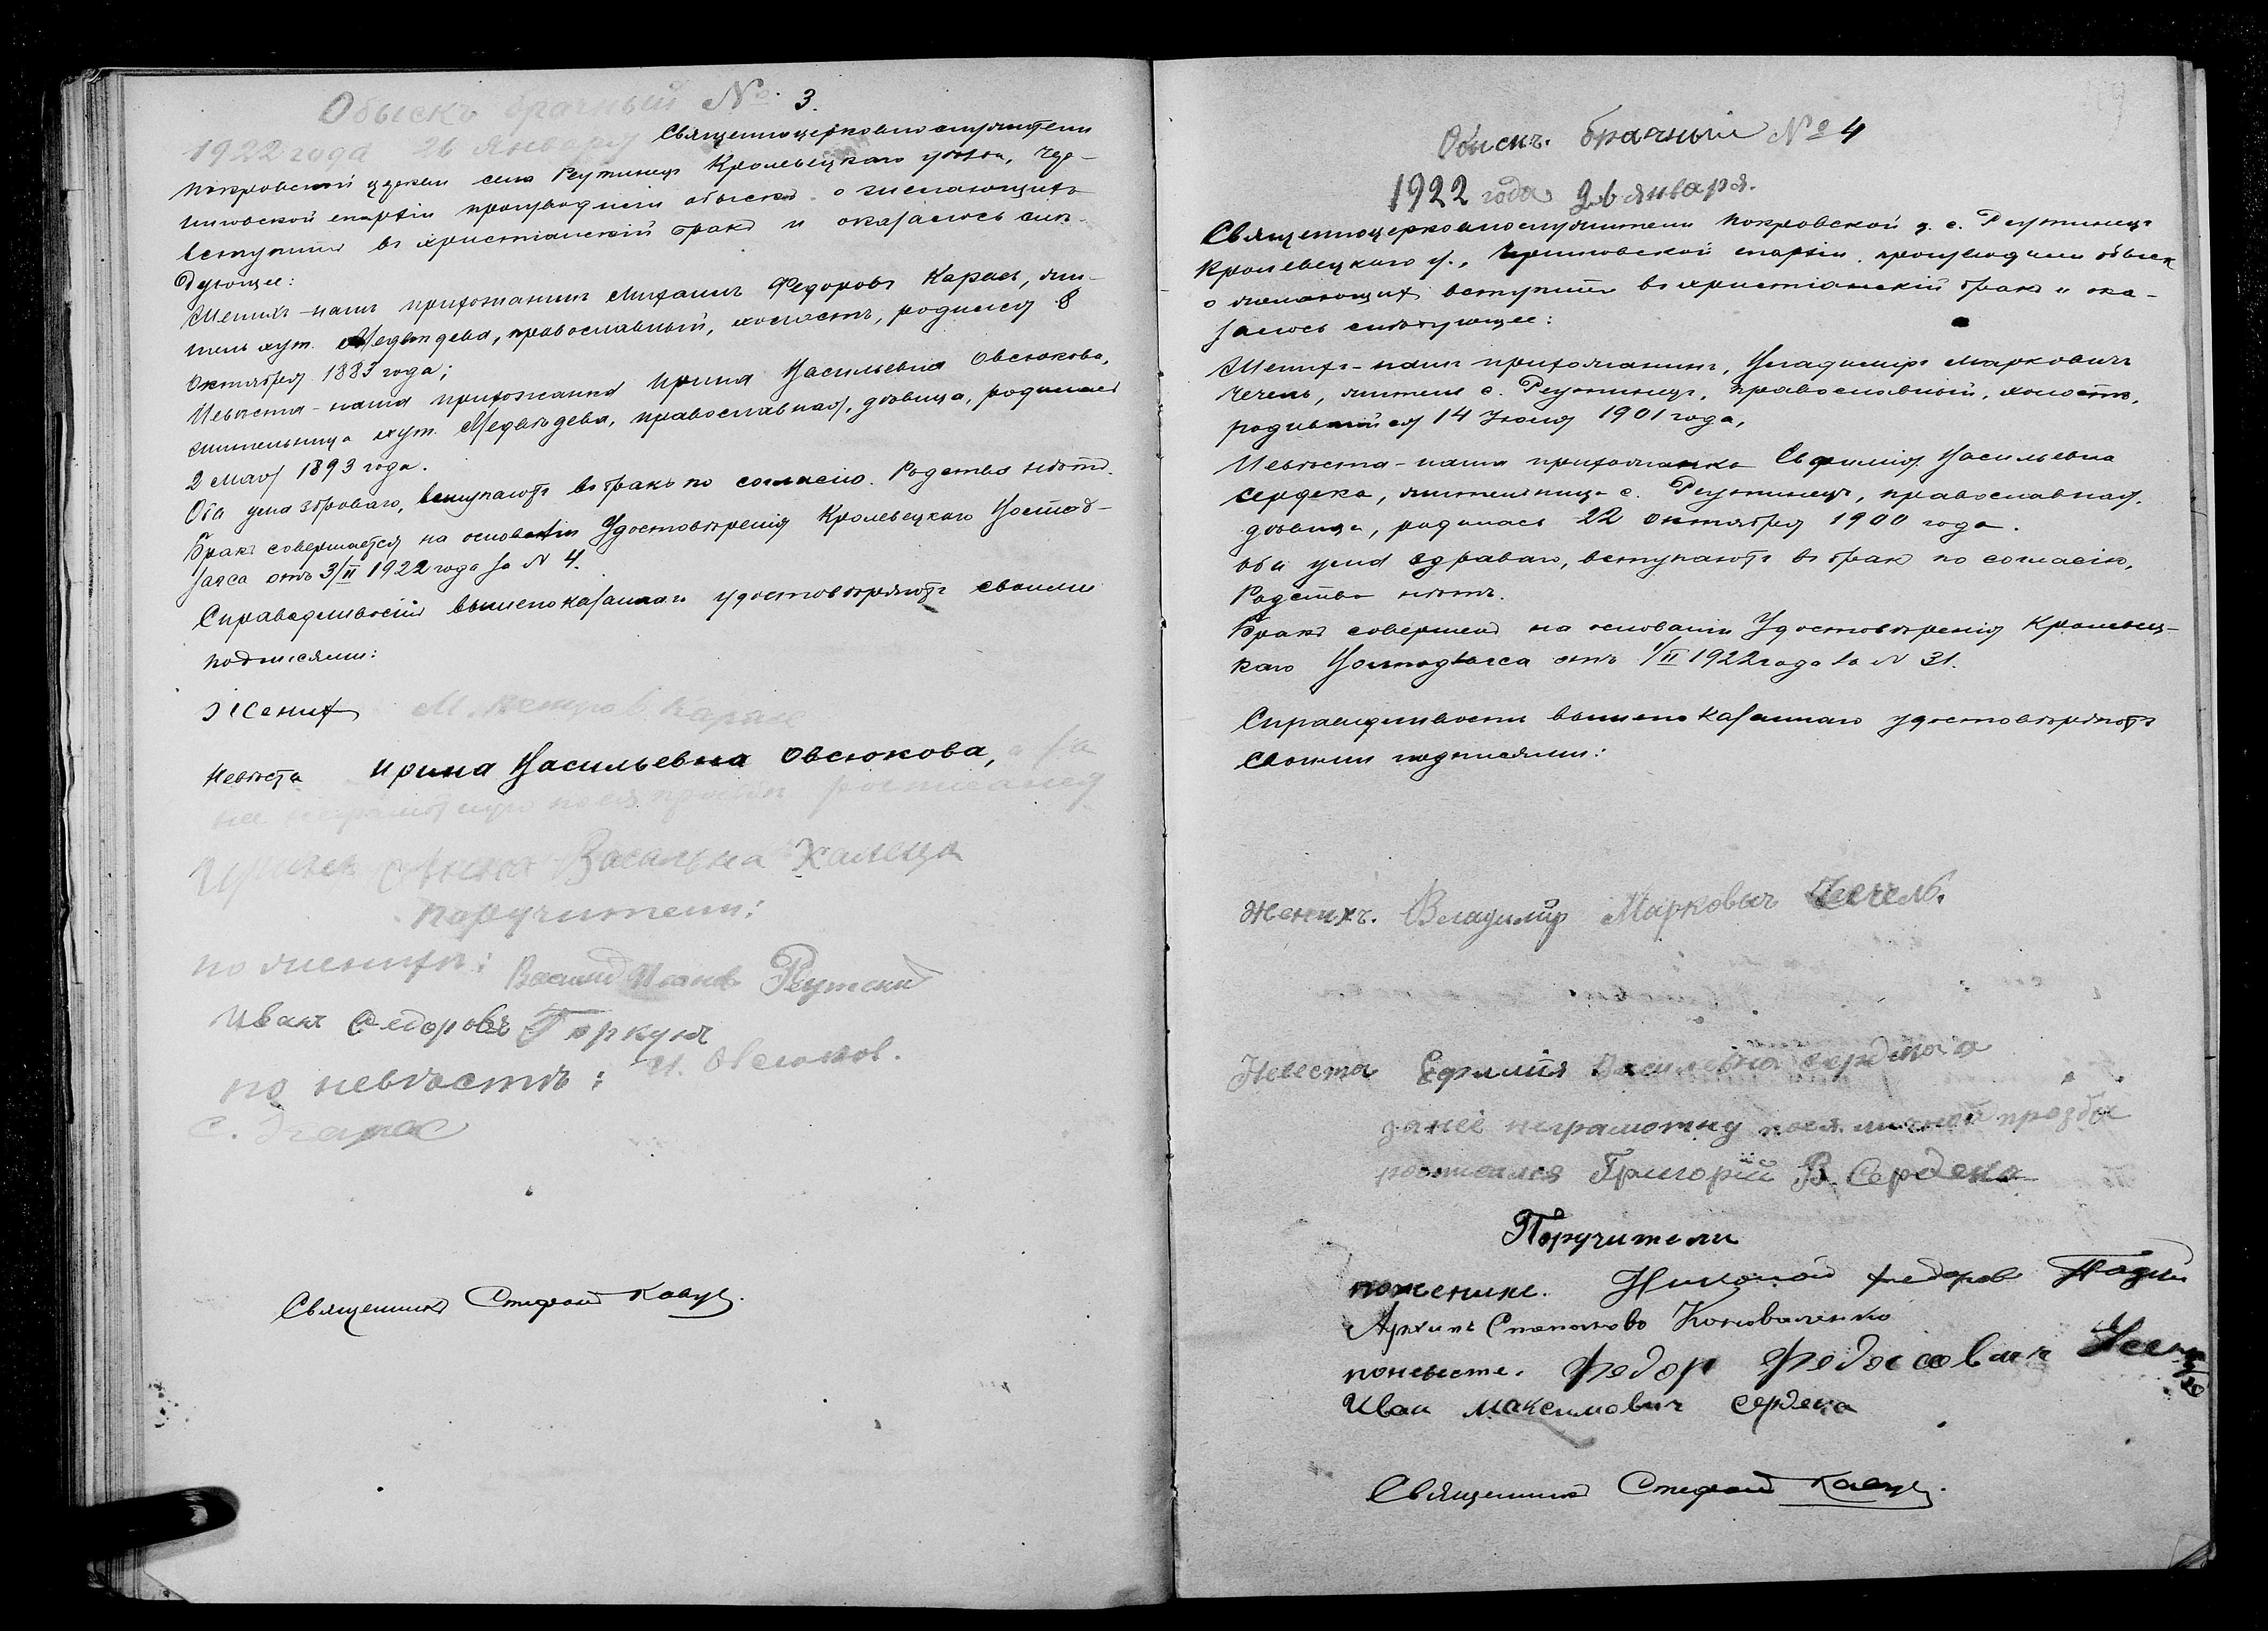 Обыскъ брачный № 3.
1922 года 26 Января Священноцерковнослужители
Покровской церкви села Реутинцъ Кролевецкаго уѣзда, Чер-
ниговской епархіи производили обыскъ о желающихъ
вступить въ христіанскій бракъ и оказалось слѣ-
дующее:
Женихъ - нашъ прихожанинъ Михаилъ Федоровъ Карась, жи-
тель хут. Медвѣдева, православный, холостъ, родился 8
Октября 1883 года;
Невѣста - наша прихожанка Ирина Васильевна Овсюкова,
жительница хут. Медвѣдева, православная, дѣвица, родилась
2 Мая 1893 года.
Оба ума здраваго, вступаютъ въ бракъ по согласію. Родства нѣтъ.
Бракъ совершается на основаніи Удостовѣренія Кролевецкаго
отъ 3/II 1922 года за № 4.
Справедливость вышепоказаннаго удостовѣряютъ своими
подписями:
Жених М. Карась
Невѣста Ирина Васильевна Овсюкова, а за
на неграмотную по ея просьбѣ
Васильна
поручители:
по женихѣ: Реутский
Иван Федоровъ Горкунъ
по невѣстѣ: И. Овсюков.
С.
Священникъ Стефанъ
Обыскъ. брачный № 4
1922 года 26 января.
Священноцерковнослужители Покровской ц. с. Реутинцъ
Кролевецкаго у., Черниговской епархіи, производили обыск
о желающих вступить въ христіанскій бракъ и ока-
залось слѣдующее:
Женихъ - нашъ прихожанинъ, Владимиръ Марковичъ
Чечель, житель с. Реутинцъ, православный, холостъ,
родившийся 14 Июля 1901 года,
Невѣста - наша прихожанка Евфимія Васильевна
Сердека, жительница с. Реутинецъ, православная,
дѣвица, родилась 22 Октября 1900 года.
Оба ума здраваго, вступаютъ въ бракъ по согласію,
Родства нѣтъ.
Бракъ совершенъ на основаніи Удостовѣренія Кролевец-
каго отъ 1/II 1922 года за № 31.
Справедливости вышепоказаннаго удостовѣряютъ
своими подписями:
Женихъ. Владимір Марковыч Чечель.
Невеста Ефимия Василевна Сердека а
за неё неграмотну по ея личной прозбе
росписался Григорій В. Сердека
Поручители
пожениже. Николай Федоров
Архипъ Степановъ Коноваленко
поневесте. Федор Федосович
Иван Максимович Сердека
Священникъ Стефанъ